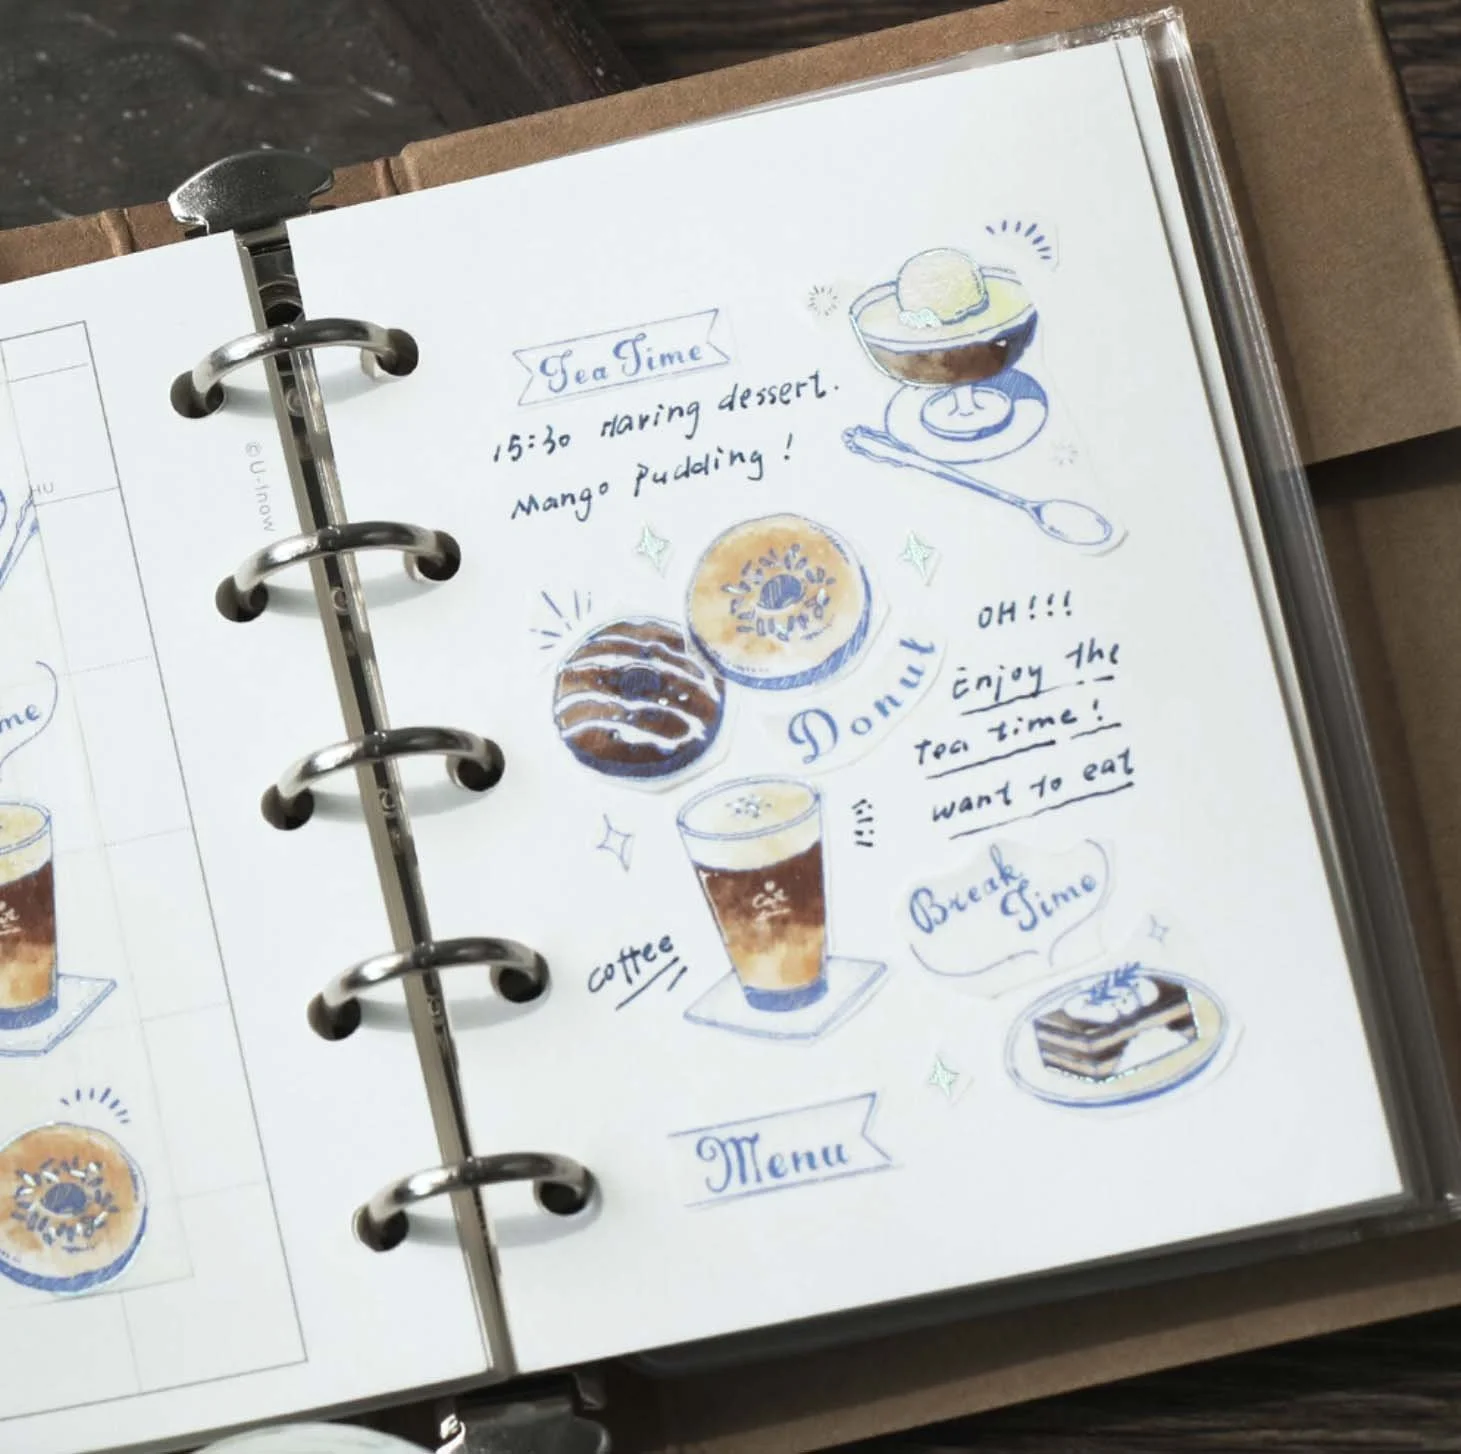 ©U-Know
me
Tea Time
15:30 Having dessert.
Mango Pudding !
Donut
OH!!!
Enjoy the
Tea time !
want to eat
Cafe
coffee
Break
Time
Menu